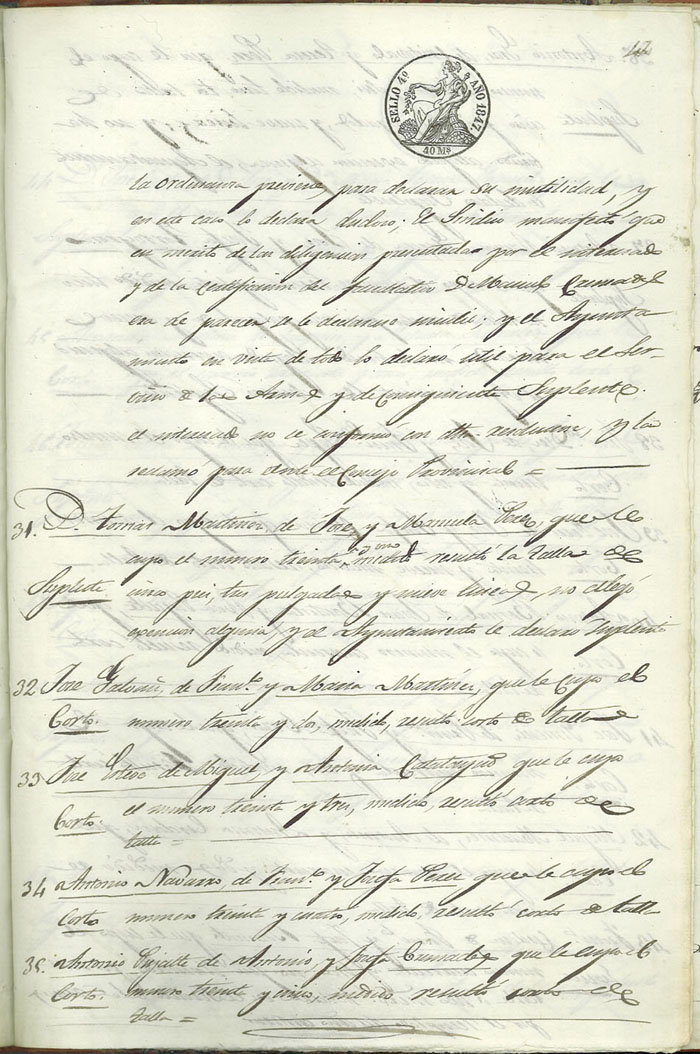 42
SELLO 4º AÑO 1847.
40 Ms
la ordenanza previene, para declarar su inutilidad, y
en este caso lo declara dudoso; El Sindico manifestó que
en merito de las diligencias presentadas por el interesado
y de la certificacion del facultativo D. Manuel
era de parecer se le declarase inutil; y el Ayunta
miento en vista de todo lo declaró util para el Ser-
vicio de las Armas y de consiguiente Suplente.
el interesado no se conformó con dha resolucion, y la
reclamo para ante el Consejo Provincial =
31. D. Tomas Martinez de Jose y Manuela Perez, que le
cupo el numero treinta y uno medido resultó la talla de
Suplente cinco pies, tres pulgadas y nueve lineas, no alegó
esencion alguna y el Ayuntamiento le declaró Suplente
32 Jose de Franco y Maria Martinez, que le cupo el
Corto. numero treinta y dos, medido, resultó corto de talla
33 Jose de Miguel, y Antonia que le cupo
Corto. el numero treinta y tres, medido, resultó corto de
talla =
34 Antonio Navarro, de Franco y Josefa Perez que le cupo el
Corto numero treinta y cuatro, medido, resultó corto de talla
35. Antonio de Antonio, y Josefa que le cupo el
Corto. numero treinta y cinco, medido resultó corto de
talla =